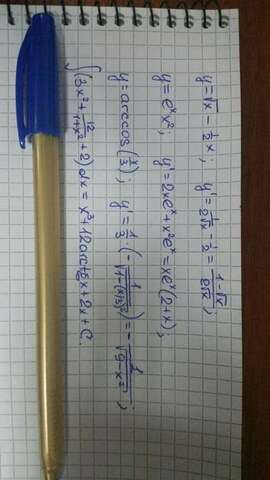 y=√x - 1/2 x; y'= 1/(2√x) - 1/2 = (1-√x)/(2√x);
y=eˣx²; y'=2xeˣ+x²eˣ=xeˣ(2+x);
y=arccos(x/3); y'= 1/3 · (- 1/√(1-(x/3)²)) = - 1/√(9-x²);
∫(3x²+ 12/(1+x²) +2)dx = x³+12arctg x+2x+C.